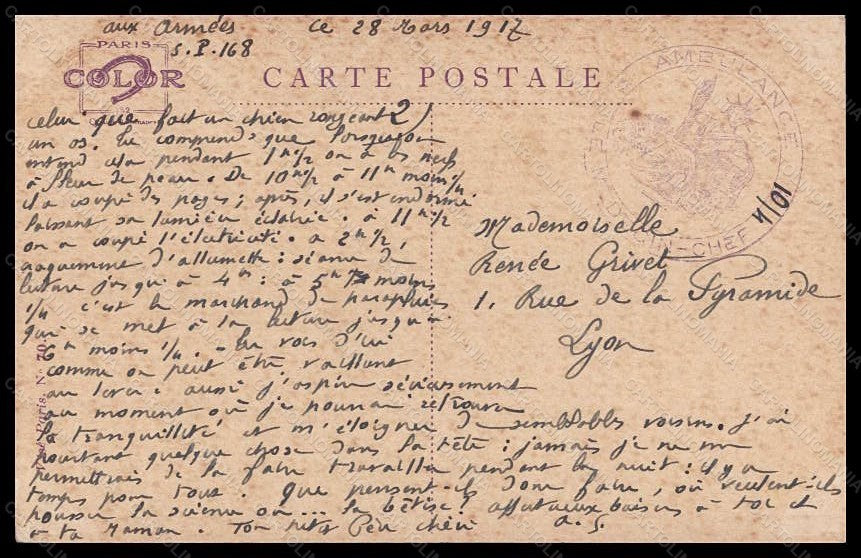 aux Armées ce 28 Mars 1917
S.P. 168
PARIS
COLOR
CARTE POSTALE
AMBULANCE
N-CHEF
4/01
2)
celui que fait un chien rongeant
un os. Tu comprends que lorsqu'on
entend cela pendant 1h ½ on a les nerfs
à fleur de peau. De 10h ½ à 11h moins ¼
il a coupé des pages ; après, il s'est endormi
laissant sa lumière éclairée. à 11h ½
on a coupé l'électricité. à 2h ½,
craquement d'allumette : séance de
lecture jusqu'à 4h : à 5h moins
¼ c'est le marchand de parapluies
qui se met à la lecture jusqu'à
6h moins ¼. Tu vois d'ici
comme on peut être vaillant
au lever : aussi j'aspire sérieusement
au moment où je pourrai retrouver
la tranquillité et m'éloigner de semblables voisins. J'ai
pourtant quelque chose dans la tête ; jamais je ne me
permettrais de la faire travailler pendant la nuit : il y a
temps pour tous. Que pensent-ils donc faire, où veulent-ils
pousser la science ou ... la bêtise ? affectueux baisers à toi et
à ta Maman. Ton petit Père chéri
Mademoiselle
Renée Grivet
1, Rue de la Pyramide
Lyon
Paris. N°